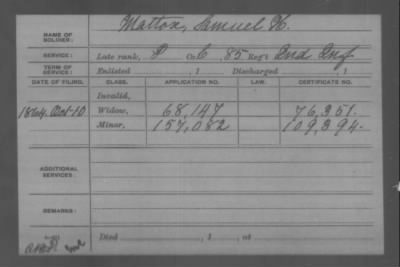 NAME OF SOLDIER: Mattox, Samuel H.
SERVICE: Late rank, P Co. C, 85 Reg't Ind Inf
TERM OF SERVICE: Enlisted , 1 Discharged , 1
DATE OF FILING. CLASS. APPLICATION NO. LAW. CERTIFICATE NO.
Invalid,
1864, Oct 10 Widow, 68,147 76,351.
Minor, 157,082 109,394.
ADDITIONAL SERVICES:
REMARKS:
Died , 1 , at